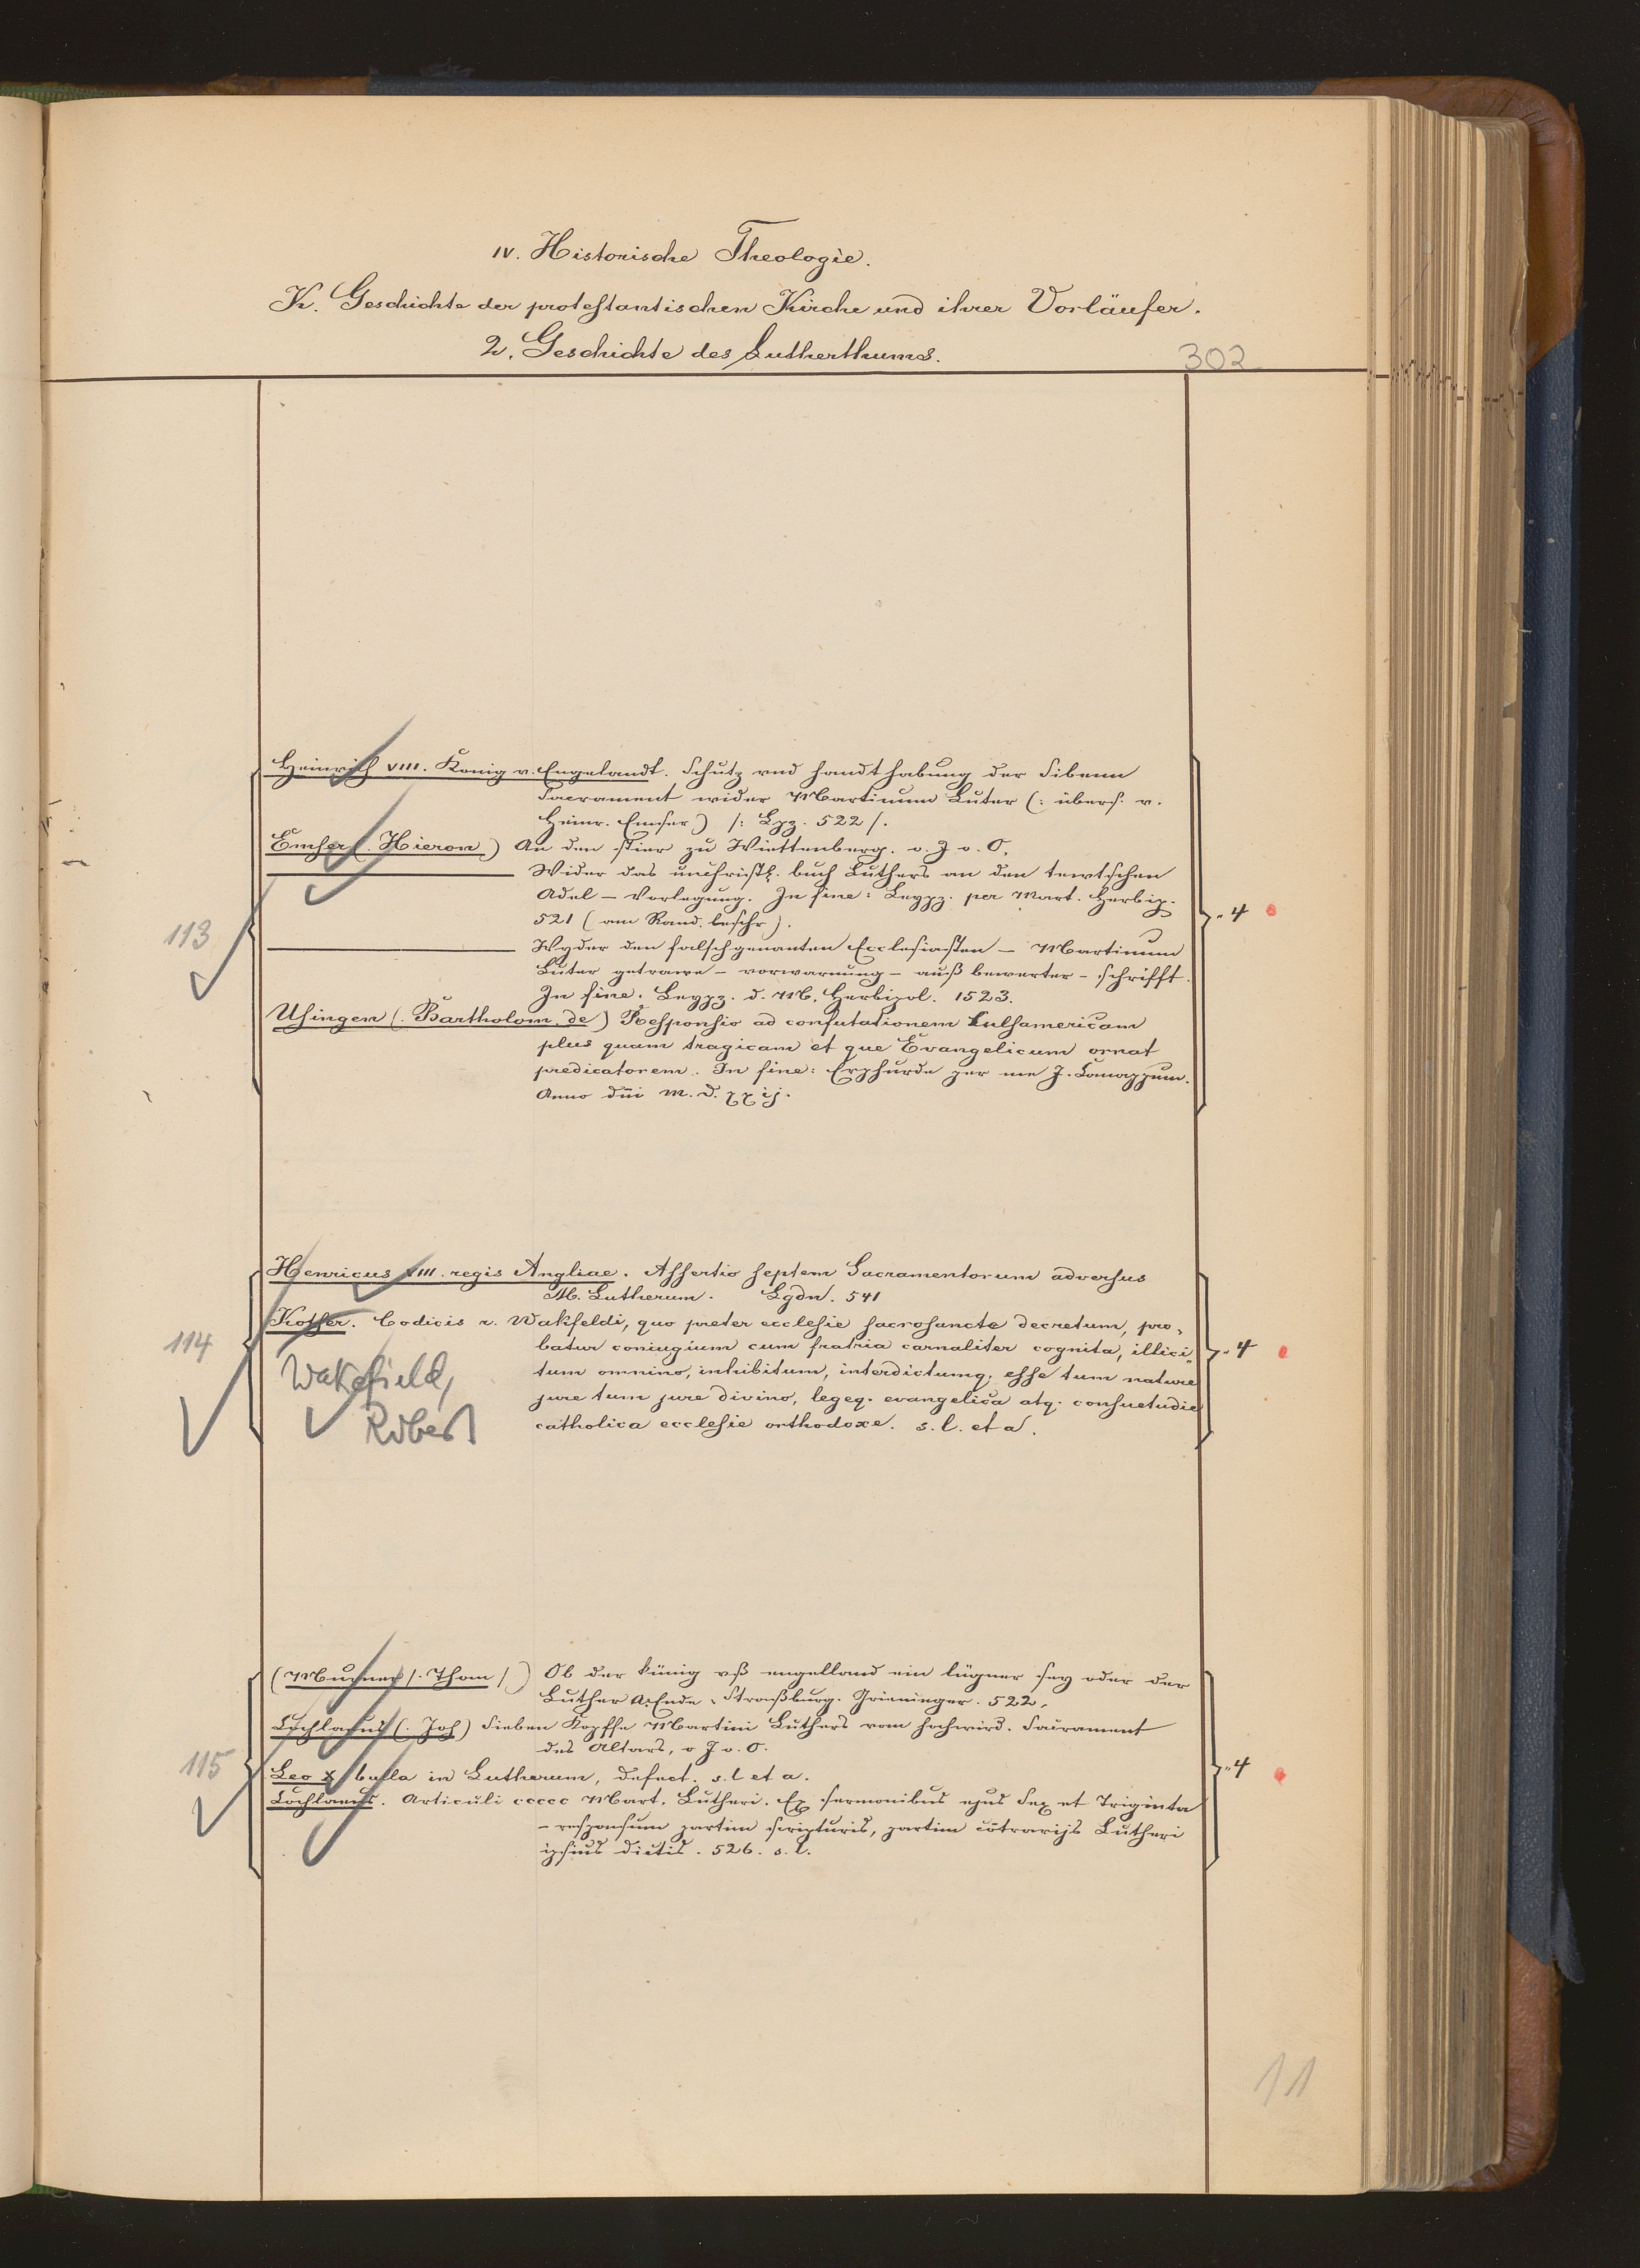 IV. Historische Theologie.
K. Geschichte der protestantischen Kirche und ihrer Vorläufer.
2. Geschichte des Lutherthums.
302
Heinrich VIII. König v. Engelandt. Schutz vnd handthabung der Sibenn
Sacrament wider Martinum Luter (: übers. v.
Heinr. Emser) /: Lpz. 522 /.
Emser (. Hieron.) An den stier zu Wiettenberg. o. J. o. O.
Wider das unchristl. buch Luthers an den tewtschen
Adel – Vorlegung. In fine: Leypz. per Mart. Herbip.
521 (am Rand beschr).
113
„ 4
Wyder den falschgenanten Ecclesiasten – Martinum
Luter getrawe – vorwarnung – auß bewerter – schrifft.
In fine. Leypz. d. M. Herbipol. 1523.
Usingen (. Bartholom. de) Responsio ad confutationem Culsamericam
plus quam tragicam et que Evangelicum ornat
predicatorem. In fine: Erphurde per me J. Canappum.
Anno dñi m. d. xxij.
Henricus VIII. regis Angliae. Assertio septem Sacramentorum adversus
M. Lutherum. Lgdn. 541
Kotser. Codicis r. Wakfeldi, quo preter ecclesie sacrosancte decretum, pro-
114
„ 4
batur coniugium cum fratria carnaliter cognita, illici„
Wakefield,
Robert
tum omnino, inhibitum, interdictumq. esse tum nature
jure tum jure divino, legeq. evangelica atq. consuetudie
catholica ecclesie orthodoxe. s. l. et a.
(Murner /. Thom /.) Ob der künig vß engelland ein lügner sey oder der
Luther A. Ende. Straßburg. Grieninger. 522.
Cochlaeus (. Joh) Sieben Kopffe Martini Luthers vom hochwird. Sacrament
des Altars, o J o. O.
115
„ 4
Leo X bulla in Lutherum, defect. s. l et a.
Cochlaeus. Articuli ccccc Mart. Lutheri. Ex sermonibus ejus Sex et Triginta
– responsum partim scripturis, partim cõtrarijs Lutheri
ipsius dictis. 526. s. l.
11